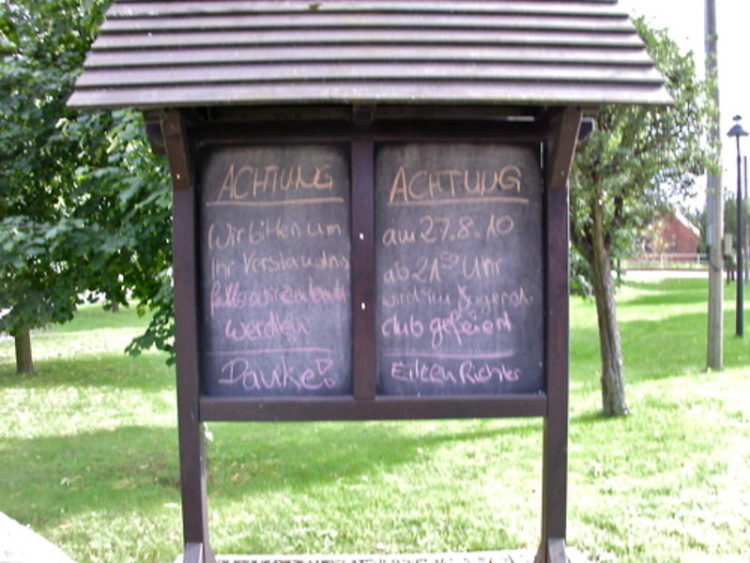 ACHTUNG
Wir bitten um
Ihr Verständnis
falls wir zu laut
werden
Danke!
ACHTUNG
am 27.8.10
ab 21°° Uhr
wird im Jugend-
club gefeiert
Eileen Richter